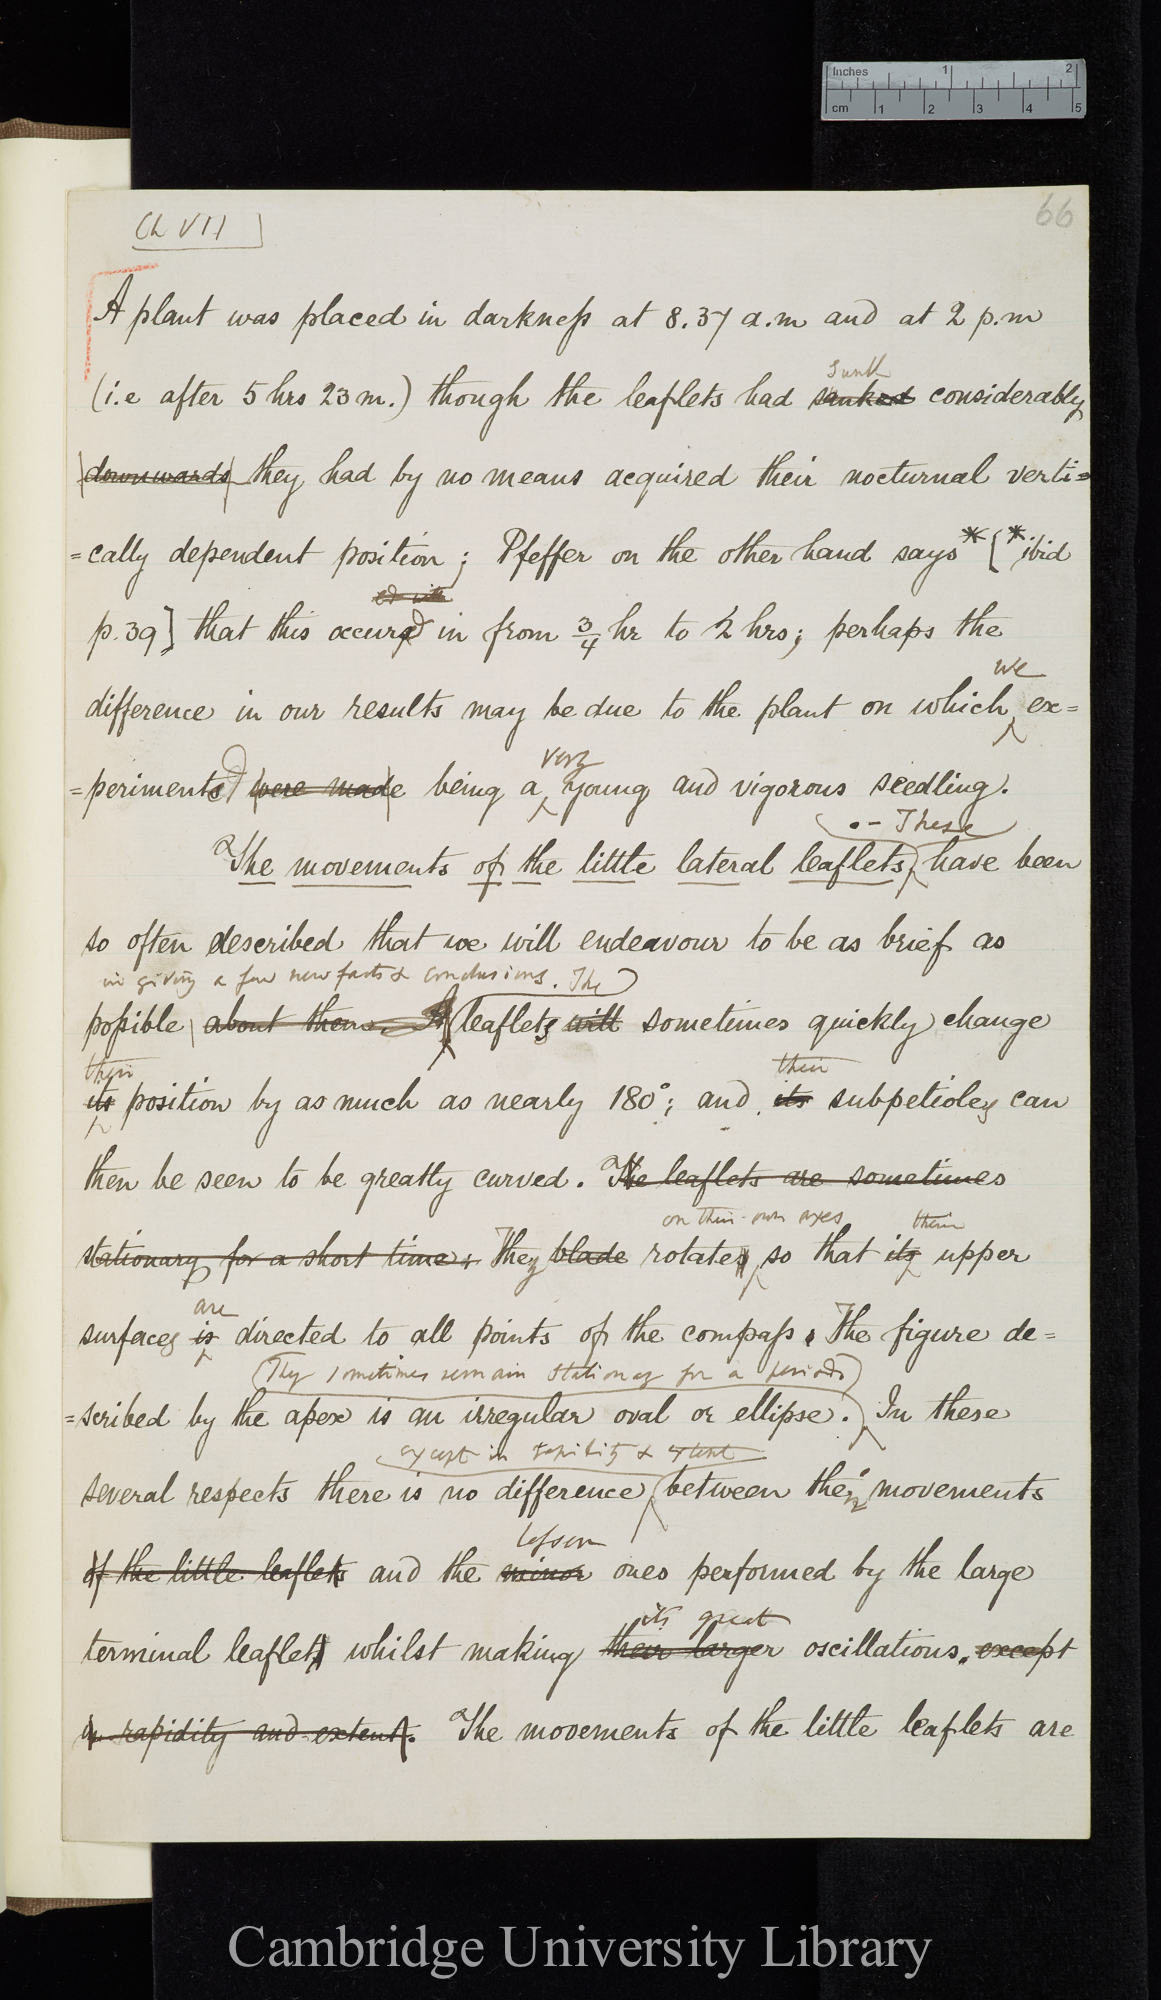 Inches 1 2
cm 1 2 3 4 5
Ch VII
66
A plant was placed in darkness at 8.37 a.m and at 2 p.m
sunk
(i.e after 5 hrs 23 m.) though the leaflets had sanked considerably
downwards they had by no means acquired their nocturnal verti=
=cally dependent position; Pfeffer on the other hand says* [* ibid
ed with
p. 39] that this occurred in from 3/4 hr to 2 hrs; perhaps the
we
difference in our results may be due to the plant on which ex=
very
=perimented were made being a young and vigorous seedling.
.– These
The movements of the little lateral leaflets have been
so often described that we will endeavour to be as brief as
in giving a few new facts & conclusions. The
possible about them. leaflets will sometimes quickly change
their their
its position by as much as nearly 180°; and its subpetioles can
then be seen to be greatly curved. The leaflets are sometimes
on their own axes their
stationary for a short time: They blade rotates so that its upper
are
surfaces is directed to all points of the compass. The figure de=
(They sometimes remain stationary for a period)
=scribed by the apex is an irregular oval or ellipse. In these
except in rapidity & extent
several respects there is no difference between their movements
lesser
of the little leaflets and the minor ones performed by the large
its great
terminal leaflet whilst making their larger oscillations, except
in rapidity and extent. The movements of the little leaflets are
Cambridge University Library